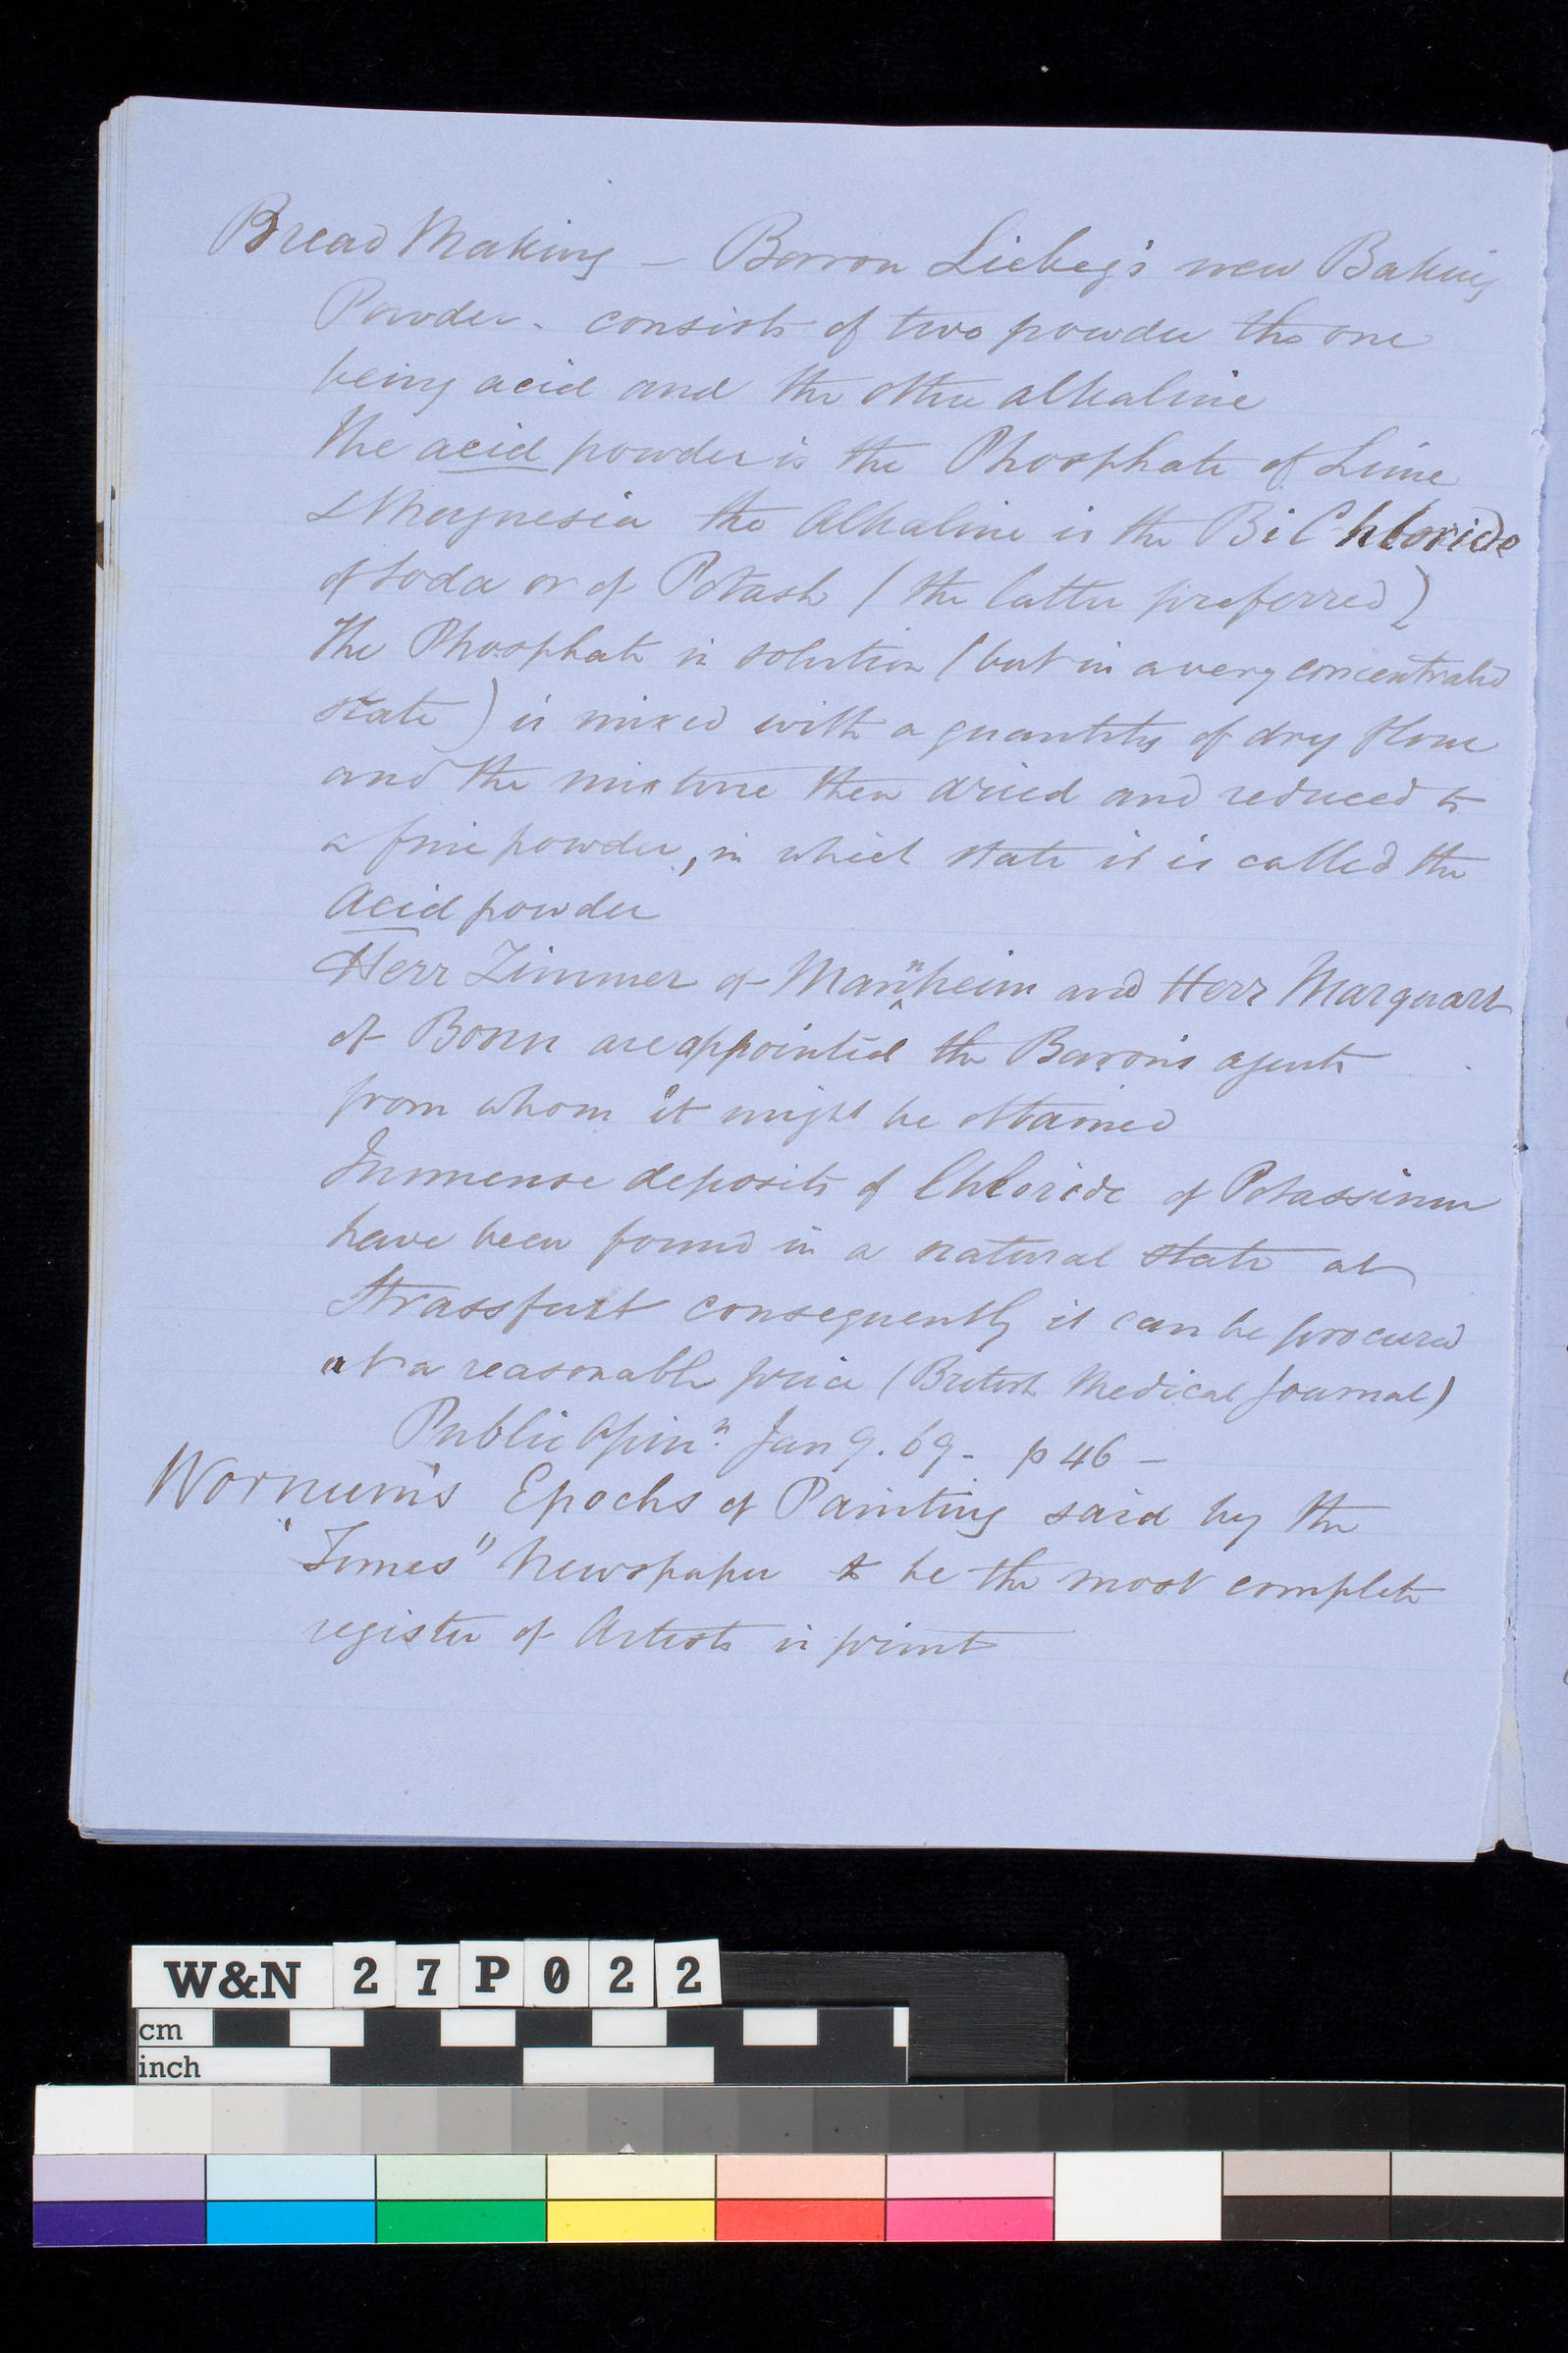 Bread Making – Barron Liebeg's new Baking
Powder. consists of two powder the one
being acid and the other alkaline
The acid powder is the Phosphate of Lime
& Magnesia the Alkaline is the Bi Chloride
of Soda or of Potash (the latter preferred)
The Phosphate in solution (but in a very concentrated
state) is mixed with a quantity of dry flour
and the mixture then dried and reduced to
a fine powder, in which state it is called the
Acid powder
Herr Zimmer of Mannheim and Herr Marquart
of Bonn are appointed the Baron's agents
from whom it might be obtained
Immense deposits of Chloride of Potassium
have been found in a natural state at
Strassfurt consequently it can be procured
at a reasonable price (British Medical Journal)
Public Opinn. Jan 9. 69 – p 46 –
Wornum's Epochs of Painting said by the
"Times" Newspaper to be the most complete
register of Artists in print
W&N 27P022
cm
inch